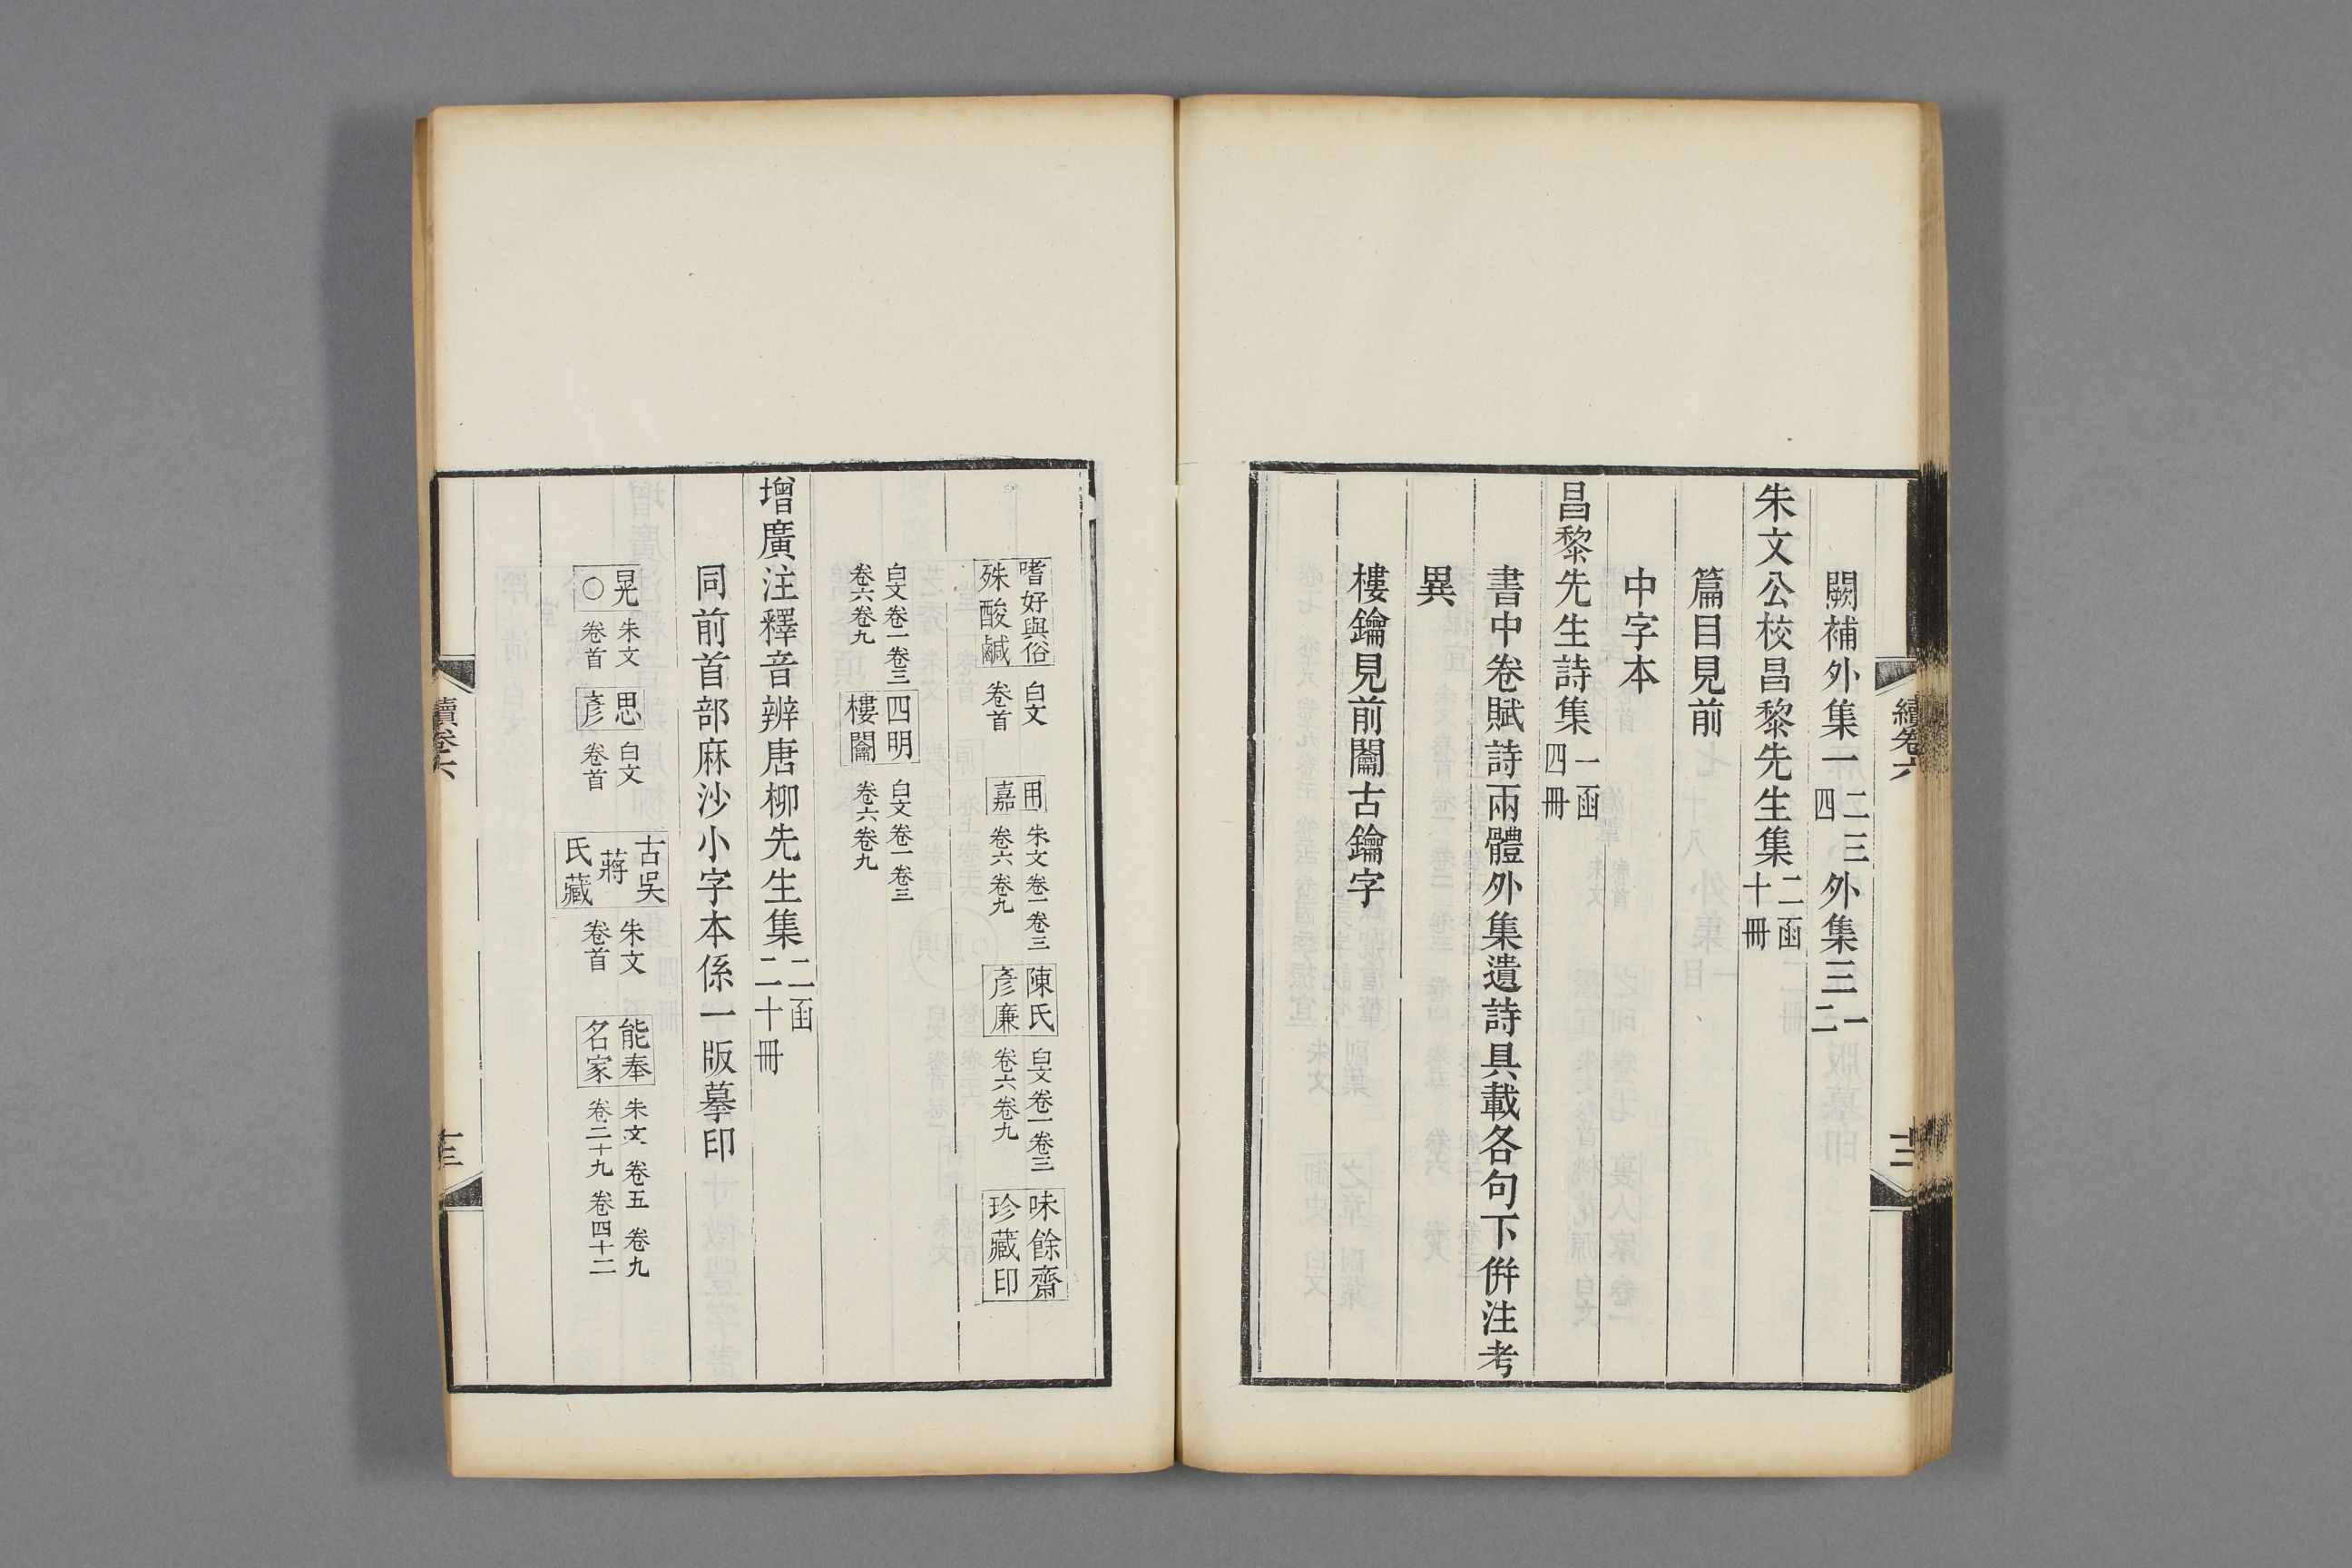 闕補外集一二三四外集三一二
朱文公校昌黎先生集二函十冊
篇目見前
中字本
昌黎先生詩集一函四冊
書中卷賦詩兩體外集遺詩具載各句下併注考
異
樓鑰見前闣古鑰字
續卷六
十二
嗜好與俗殊酸鹹 白文卷首 用嘉 朱文卷一卷三卷六卷九 陳氏彥廉 白文卷一卷三卷六卷九 味餘齋珍藏印
白文卷一卷三卷六卷九 四明樓闣 白文卷一卷三卷六卷九
增廣注釋音辨唐柳先生集二函二十冊
同前首部麻沙小字本係一版摹印
晃〇 朱文卷首 思彥 白文卷首 古吳蔣氏藏 朱文卷首 能奉名家 朱文卷五卷九卷二十九卷四十二
續卷六
十三